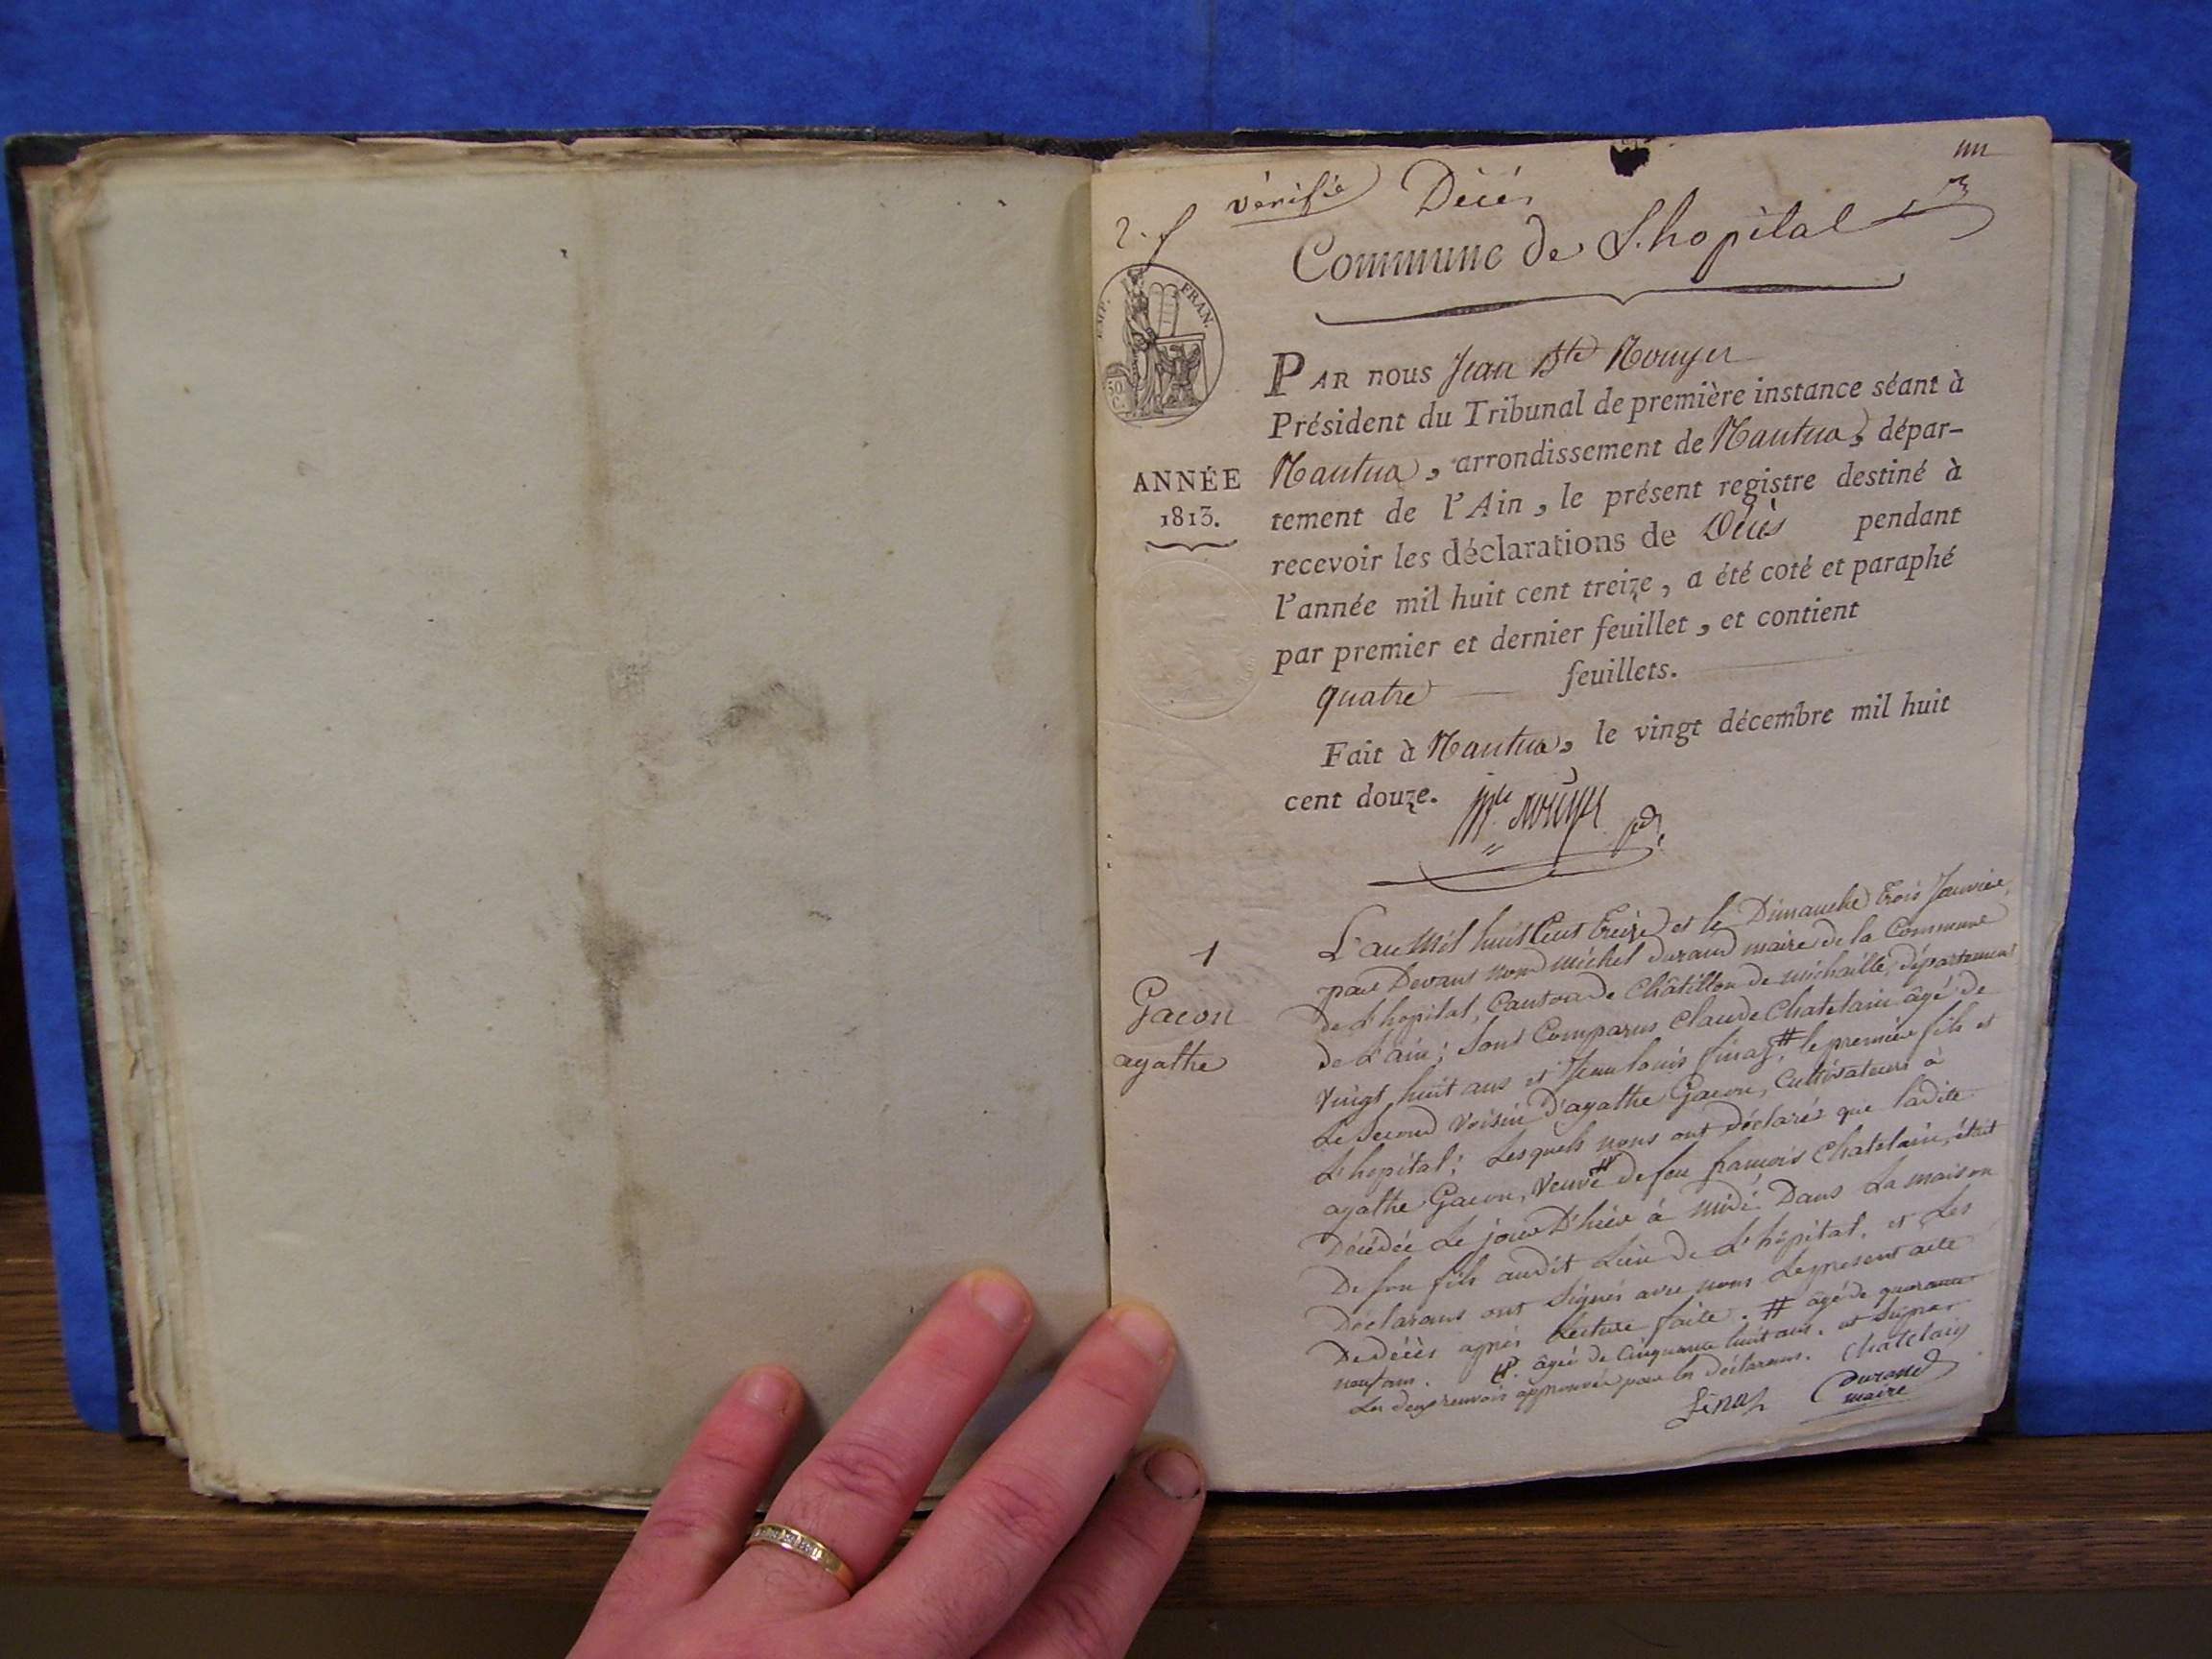 vérifié Décès
Commune de L'hopital
EMP. FRAN.
PAR nous Jean Bte Rouyer
Président du Tribunal de première instance séant à
Nantua, arrondissement de Nantua, dépar-
tement de l'Ain, le présent registre destiné à
recevoir les déclarations de Décès pendant
l'année mil huit cent treize, a été coté et paraphé
par premier et dernier feuillet, et contient
quatre feuillets.
Fait à Nantua, le vingt décembre mil huit
cent douze.
ANNÉE
1813.
1
Gacon
agathe
L'an Mil huit Cent Treize et le Dimanche trois Janvier,
par Devant nous michel durand maire de la Commune
de L'hopital, Canton de Châtillon de michaille, département
de L'ain; Sont Comparus Claude Chatelain âgé de
vingt huit ans et Jean louis finaz # le premier fils et
Le Second voisin D'agathe Gacon, Cultivateurs à
L'hopital; Lesquels nous ont déclarés que ladite
agathe Gacon, veuve # de feu francois Chatelain, était
Décédée Le jour D'hier à midi Dans La maison
De son fils audit Lieu de L'hôpital, et Les
Déclarans ont signés avec nous Le present acte
De décès après Lecture faite. # âgé de quarante
neuf ans. #. âgée de Cinquante huit ans. et
Les deux renvois approuvés par les déclarans. Chatelain
finaz Durand
maire